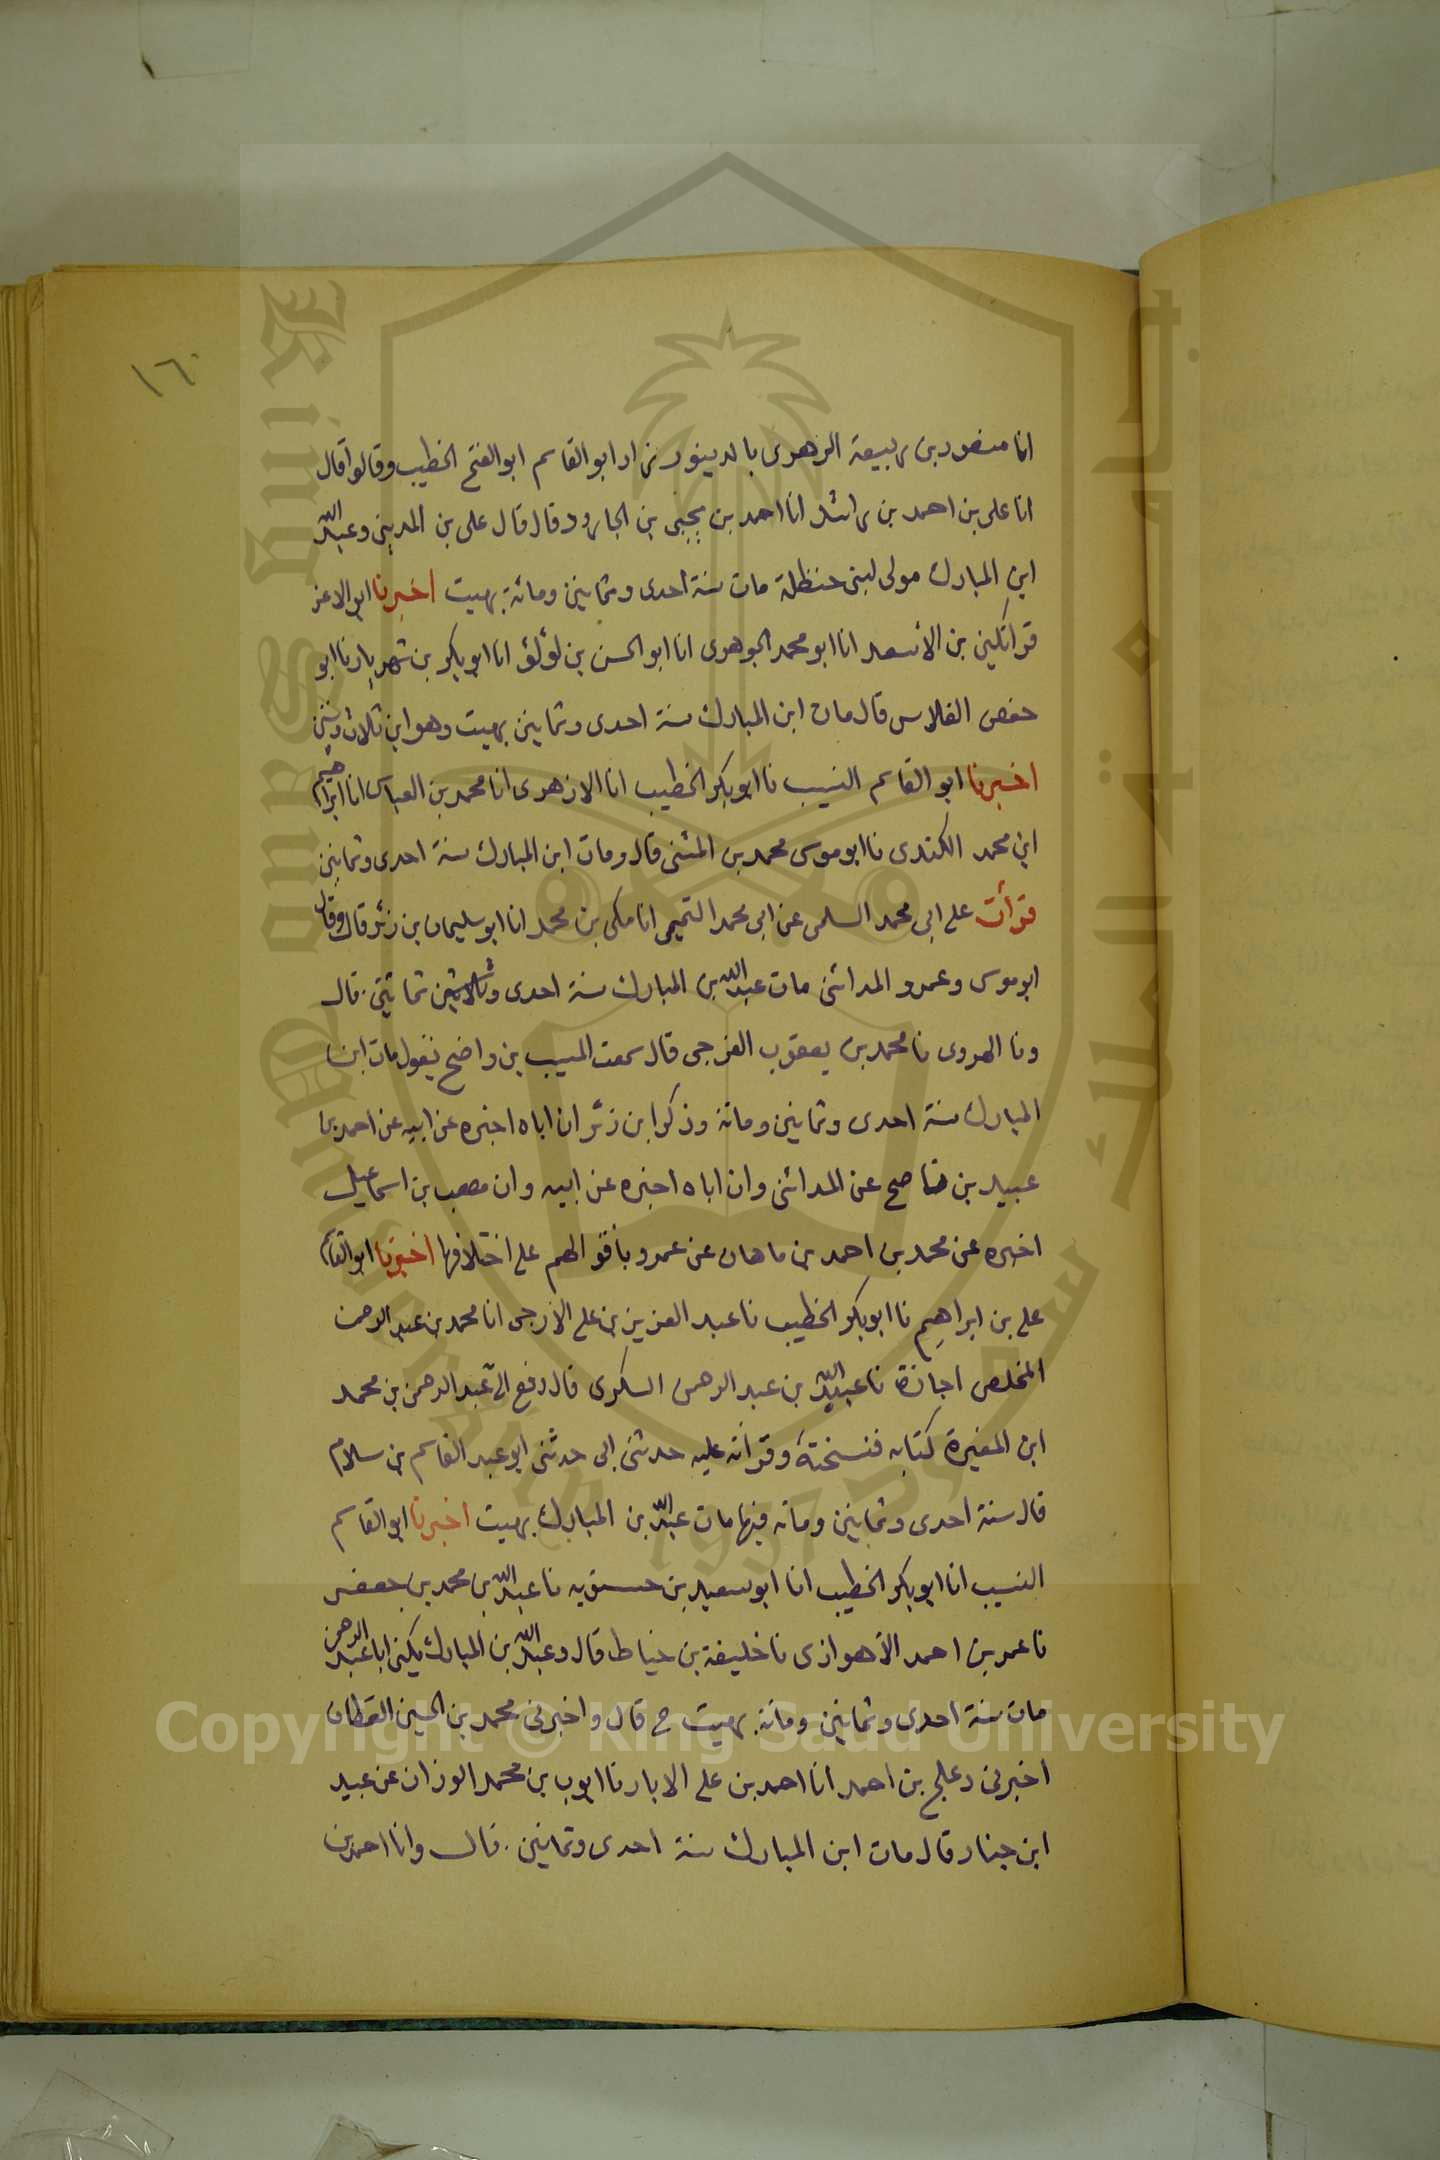 ١٦٠
انا منصور بن ربيعة الزهرى بالدينور زاد ابو القاسم ابو الفتح الخطيب وقالوا قال
انا على بن احمد بن راشد انا احمد بن يحيى بن الجارود قال قال على بن المدينى وعبد الله
ابن المبارك مولى لبنى حنظلة مات سنة احدى وثمانين ومائة بهيت اخبرنا ابو الاعز
قراتكين بن الأسعد انا ابو محمد الجوهرى انا ابو الحسن بن لؤلؤ انا ابو بكر بن شهريار نا ابو
حفص الفلاس قال مات ابن المبارك سنة احدى وثمانين بهيت وهو ابن ثلاث وستين
اخبرنا ابو القاسم النسيب نا ابو بكر الخطيب انا الازهرى انا محمد بن العباس انا ابراهيم
ابن محمد الكندى نا ابو موسى محمد بن المثنى قال ومات ابن المبارك سنة احدى وثمانين
قرأت على ابى محمد السلمى عن ابى محمد التميمى انا مكى بن محمد انا ابو سليمان بن زئر قال وقال
ابو موسى وعمرو المدائنى مات عبد الله بن المبارك سنة احدى وثمانين قال
ونا الهروى نا محمد بن يعقوب الفرجى قال سمعت المسيب بن واضح يقول مات ابن
المبارك سنة احدى وثمانين ومائة وذكر ابن زئر ان اباه اخبره عن ابيه عن احمد بن
عبيد بن ناصح عن المدائنى وان اباه اخبره عن ابيه وان مصعب بن اسماعيل
اخبره عن محمد بن احمد بن ماهان عن عمرو باقوالهم على اختلافها اخبرنا ابو القاسم
على بن ابراهيم نا ابو بكر الخطيب نا عبد العزيز بن على الازجى انا محمد بن عبد الرحمن
المخلص اجازة نا عبيد الله بن عبد الرحمن السكرى قال دفع الى عبد الرحمن بن محمد
ابن المغيرة كتابه فنسخته وقرأته عليه حدثنى ابى حدثنى ابو عبد القاسم بن سلام
قال سنة احدى وثمانين ومائه فيها مات عبد الله بن المبارك بهيت اخبرنا ابو القاسم
النسيب انا ابو بكر الخطيب انا ابو سعيد بن حسنويه نا عبد الله بن محمد بن جعفر
نا عمر بن احمد الأهوازى نا خليفة بن خياط قال وعبد الله بن المبارك يكنى ابا عبد الرحمن
مات سنة احدى وثمانين ومائة بهيت ح قال واخبرنى محمد بن الحسين القطان
اخبرنى دعلج بن احمد انا احمد بن على الابار نا ايوب بن محمد الوزان عن عبيد
ابن جناد قال مات ابن المبارك سنة احدى وثمانين قال وانا احمد بن
Copyright © King Saud University
King Saud University
جامعة الملك سعود
1957